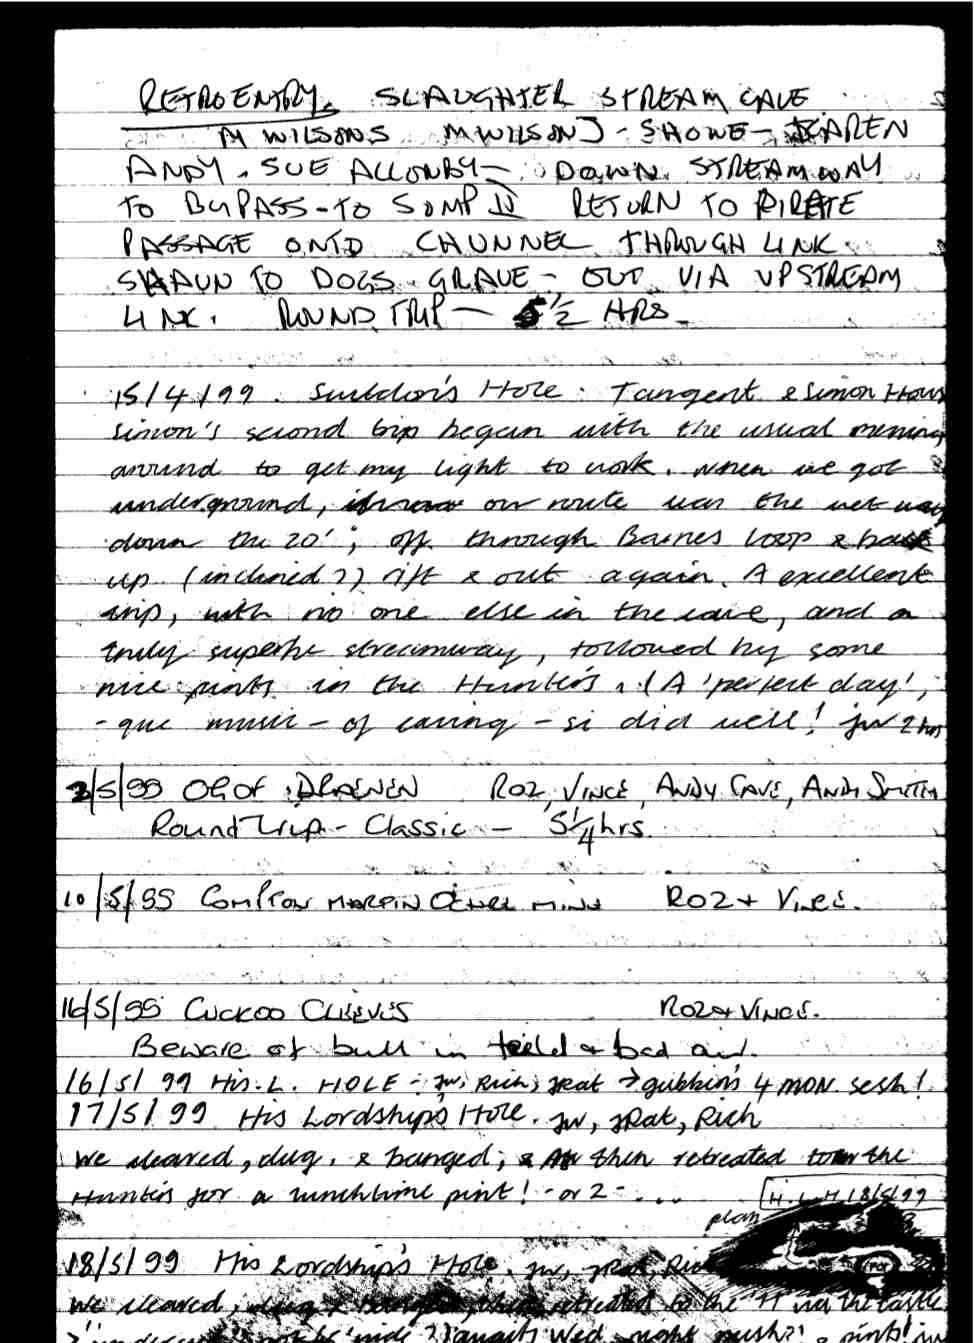 RETRO ENTRY. SLAUGHTER STREAM CAVE
M WILSONS M WILSON J - SHOWE - KAREN
ANDY. SUE ALLONBY - DOWN STREAMWAY
TO BYPASS - TO SUMP II RETURN TO PIRATE
PASSAGE ONTO CHUNNEL THROUGH LINK
SHAUN TO DOGS GRAVE - OUT VIA UPSTREAM
LINK. ROUND TRIP - 5 1/2 HRS -
15/4/99. Swildon's Hole: Tangent & Simon
Simon's second trip began with the usual
around to get my light to work. When we got
underground, our route was the wet way
down the 20'; off through Barnes Loop & back
up (inclined ??) rift & out again. A excellent
trip, with no one else in the cave, and a
truly superbe streamway, followed by some
nice pints in the Hunters. (A 'perfect day',
- que music - of caving - si did well! jw 2 hrs
2/5/99 OGOF DRAENEN ROZ, VINCE, ANDY CAVE, ANDY SMITH
Round Trip - Classic - 5 1/4 hrs.
10/5/99 COMPTON MARTIN OCHRE MINE ROZ + VINCE.
16/5/99 CUCKOO CLEEVES ROZ + VINCE.
Beware of bull in field & bad air.
16/5/99 His. L. HOLE - jw, Rich, jRat → gubbin's 4 MON. sesh!
17/5/99 His Lordship's Hole. jw, jRat, Rich
We cleared, dug, & banged, & then retreated to the
Hunters for a lunchtime pint! - or 2 - ...
H. L. H 18/5/99
plan
18/5/99 His Lordship's Hole. jw, jRat, Rich
We cleared, dug & banged, then retreated to the 'H' via the castle
Wed night